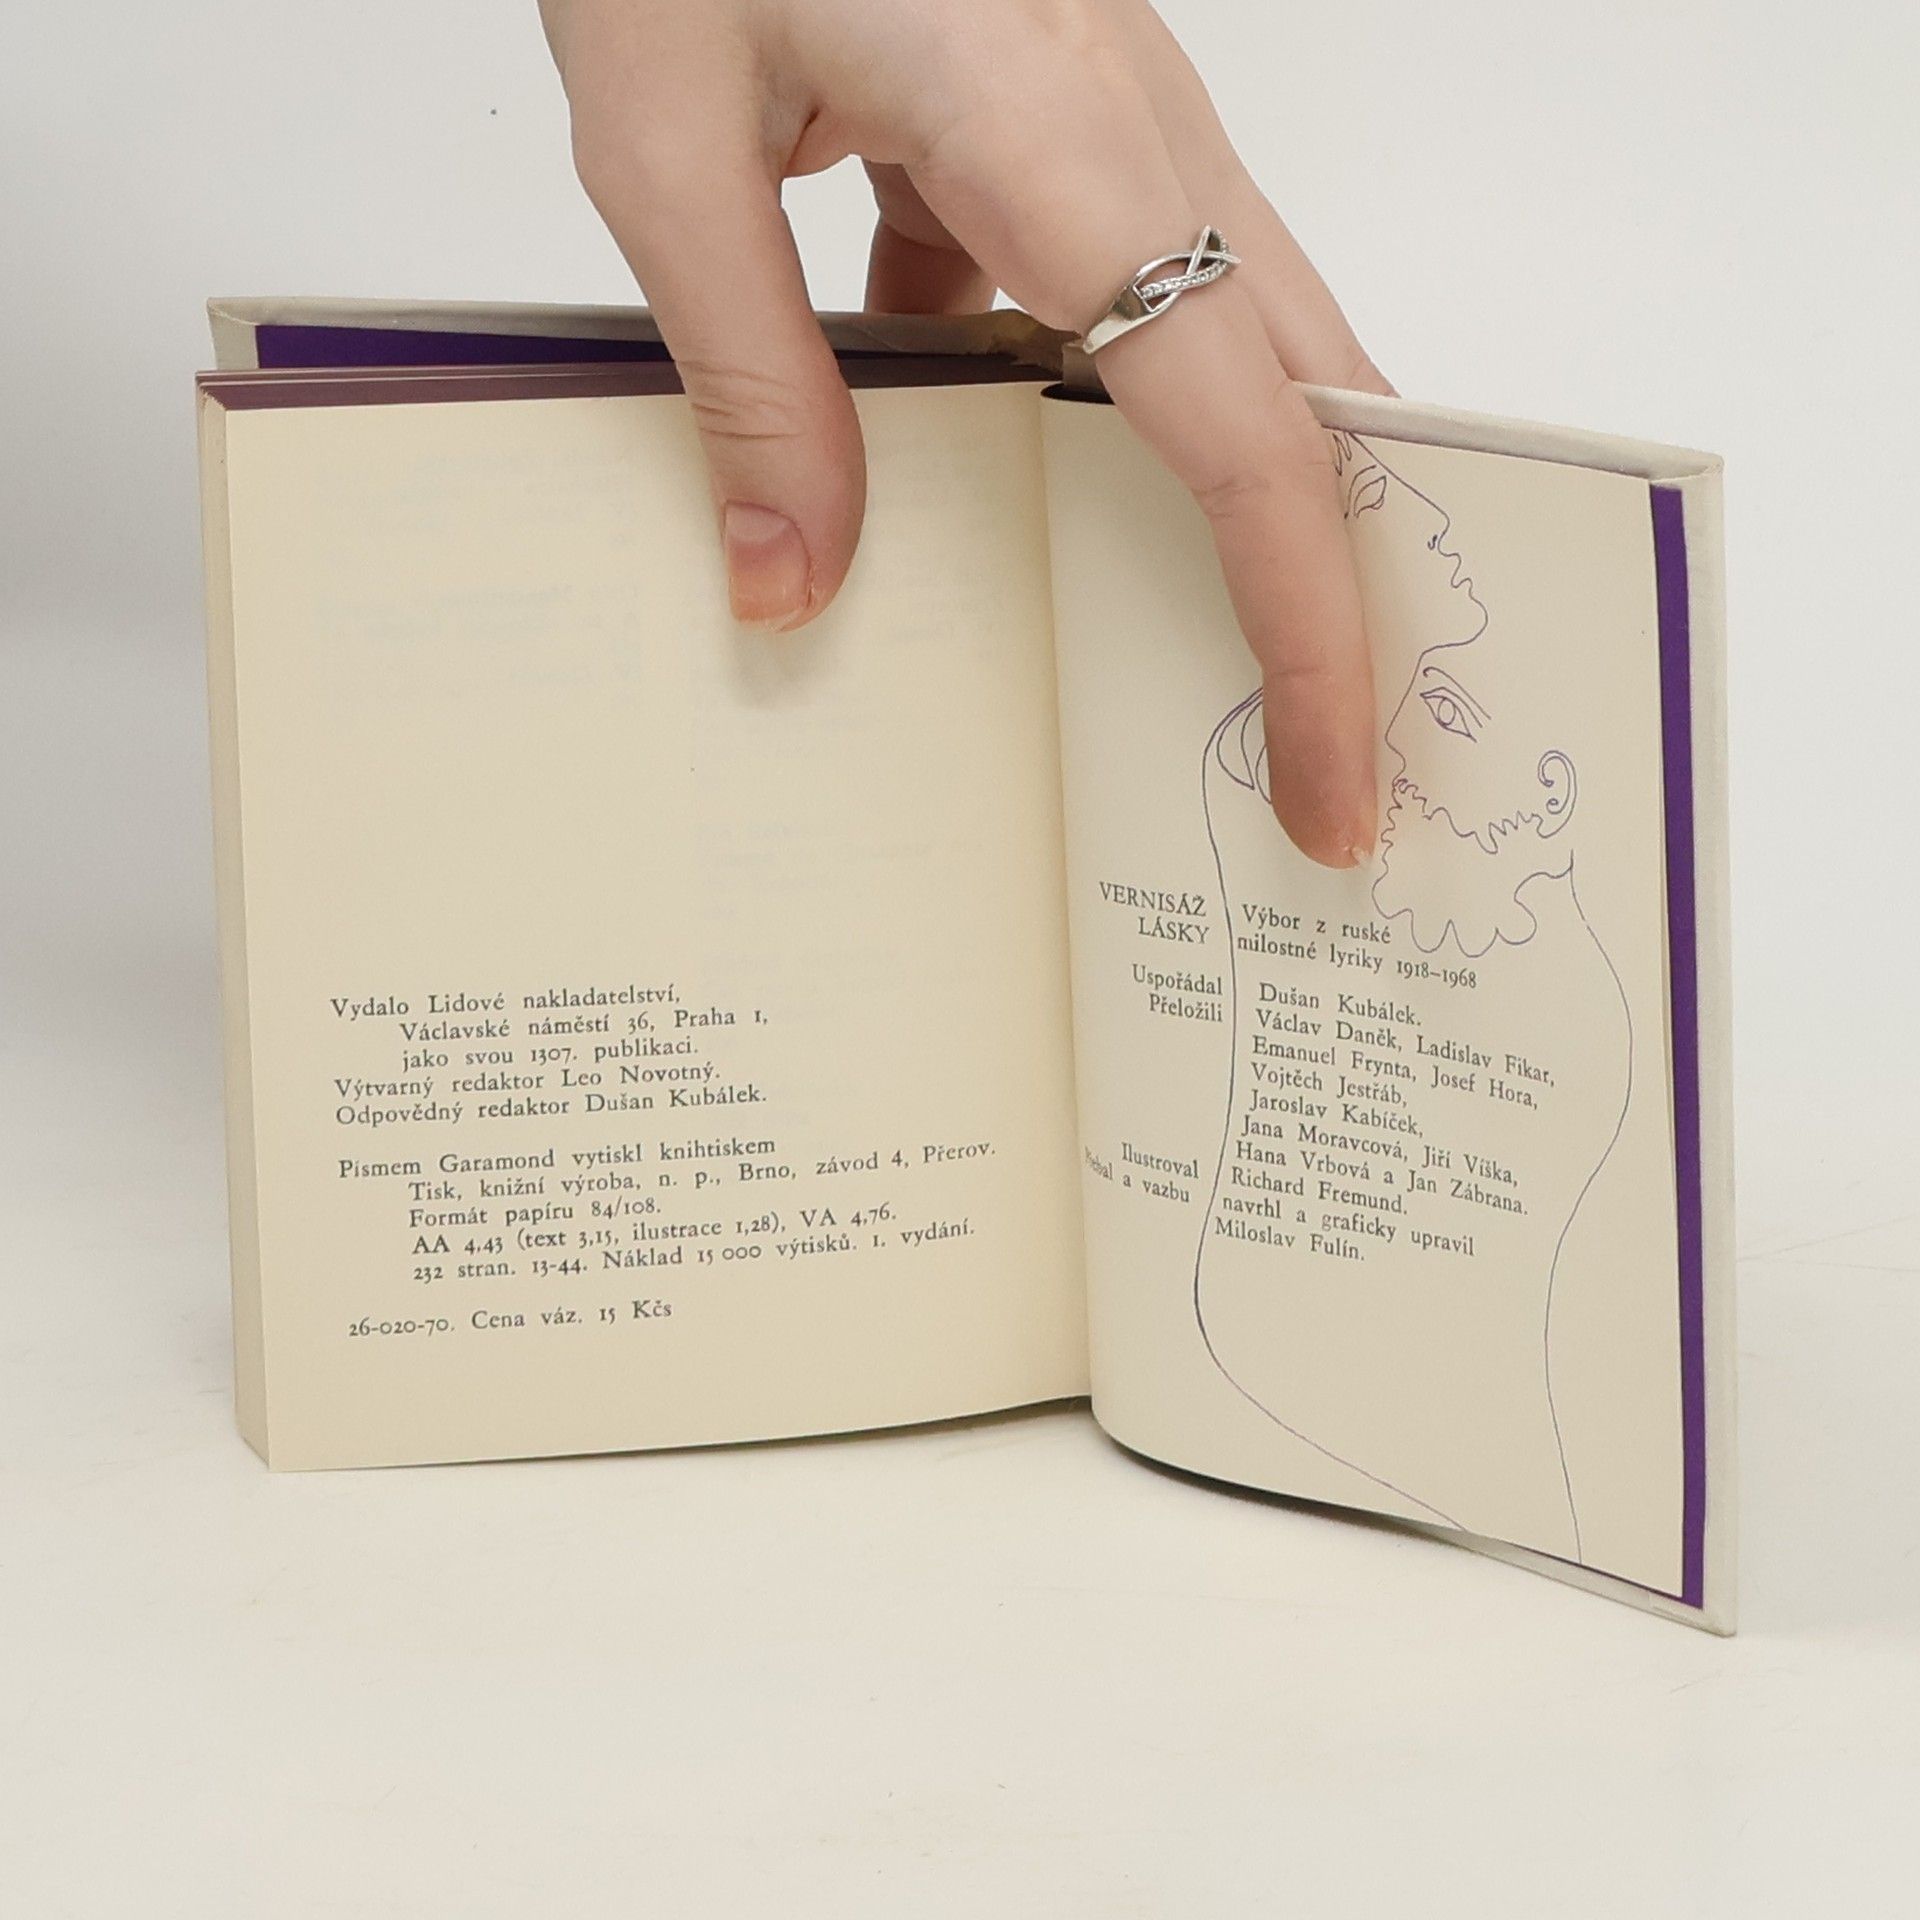 Vydalo Lidové nakladatelství,
Václavské náměstí 36, Praha 1,
jako svou 1307. publikaci.
Výtvarný redaktor Leo Novotný.
Odpovědný redaktor Dušan Kubálek.
Písmem Garamond vytiskl knihtiskem
Tisk, knižní výroba, n. p., Brno, závod 4, Přerov.
Formát papíru 84/108.
AA 4,43 (text 3,15, ilustrace 1,28), VA 4,76.
232 stran. 13-44. Náklad 15 000 výtisků. 1. vydání.
26-020-70. Cena váz. 15 Kčs
VERNISÁŽ
LÁSKY
Výbor z ruské
milostné lyriky 1918–1968
Uspořádal Dušan Kubálek.
Přeložili Václav Daněk, Ladislav Fikar,
Emanuel Frynta, Josef Hora,
Vojtěch Jestřáb,
Jaroslav Kabíček,
Jana Moravcová, Jiří Víška,
Hana Vrbová a Jan Zábrana.
Ilustroval Richard Fremund.
a vazbu navrhl a graficky upravil
Miloslav Fulín.